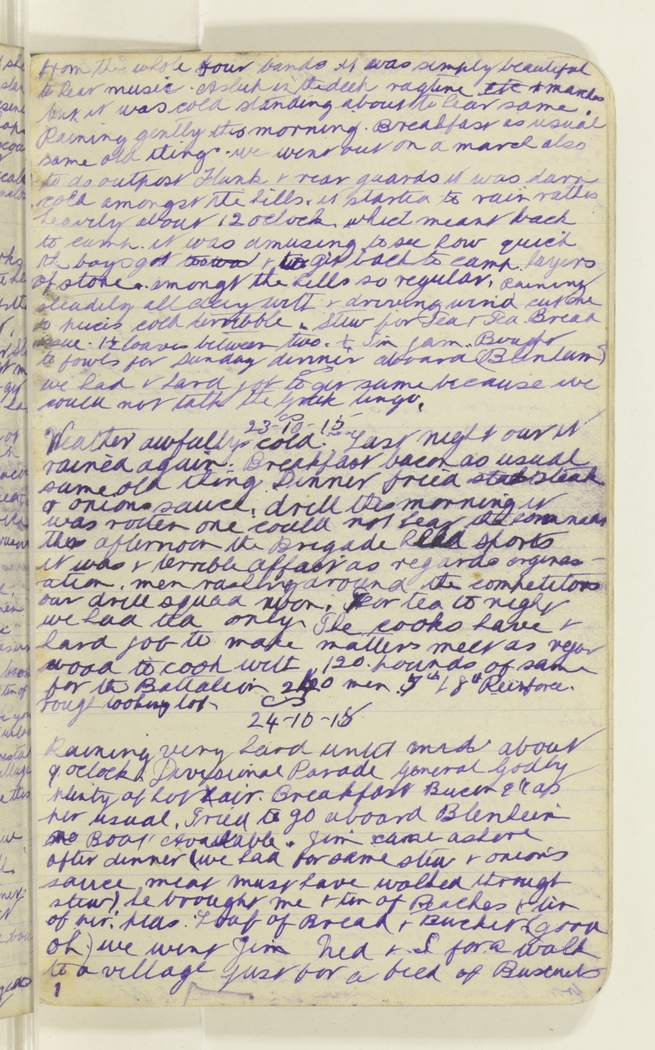 from the whole four bands it was simply beautiful
to hear music. Aslish in the deck ragtime etc & marches
but it was cold standing about to hear same.
Raining gently this morning. Breakfast as usual
same old thing. we went out on a march also
to do outpost Flank & rear guards it was darn
cold amongst the hills. it started to rain rather
heavily about 12 oclock which meant back
to camp. it was amusing to see how quick
the boys got & to get back to camp. layers
of stone. amongst the hills so regular, Raining
steadily all day with & driving wind cut one
to pieces cold terrible. Stew for Tea & Tea. Bread
issue. 1½ loaves between two. & Tin jam. Bought
to fowls for Sunday dinner aboard (Blenhem)
we had & hard job to get same because we
could not talk the Greek lingo.
23-10-15
Weather awfully cold. Last night our it
rained again. Breakfast bacon as usual
same old thing. Dinner fried steak
& onions sauce. drill this morning it
was rotten one could not hear the commands
this afternoon the Brigade held sports
it was & terrible affair as regards organis-
ation. men rushing around the competitors
our drill squad won. For tea to night
we had tea only. The cooks have &
hard job to make matters meet as regar
wood to cook with. 120 pounds of same
for the Battalion men. 7th & 8th Reinforc.
rough looking lot
24-10-15
Raining very hard until mid about
9 oclock. Divisional Parade General Godly
plenty of hot air. Breakfast Bacon as
per usual. Tried to go aboard Blenheim
no Boat available. Jim came ashore
after dinner (we had for same stew & onions
sauce meat must have walked through
stew) he brought me & tin of Peaches & tin
of Peas. Loaf of Bread & Bucket (good
oh) we went Jim Ned & I for a walk
to a village just for a feed of Buscuits
1